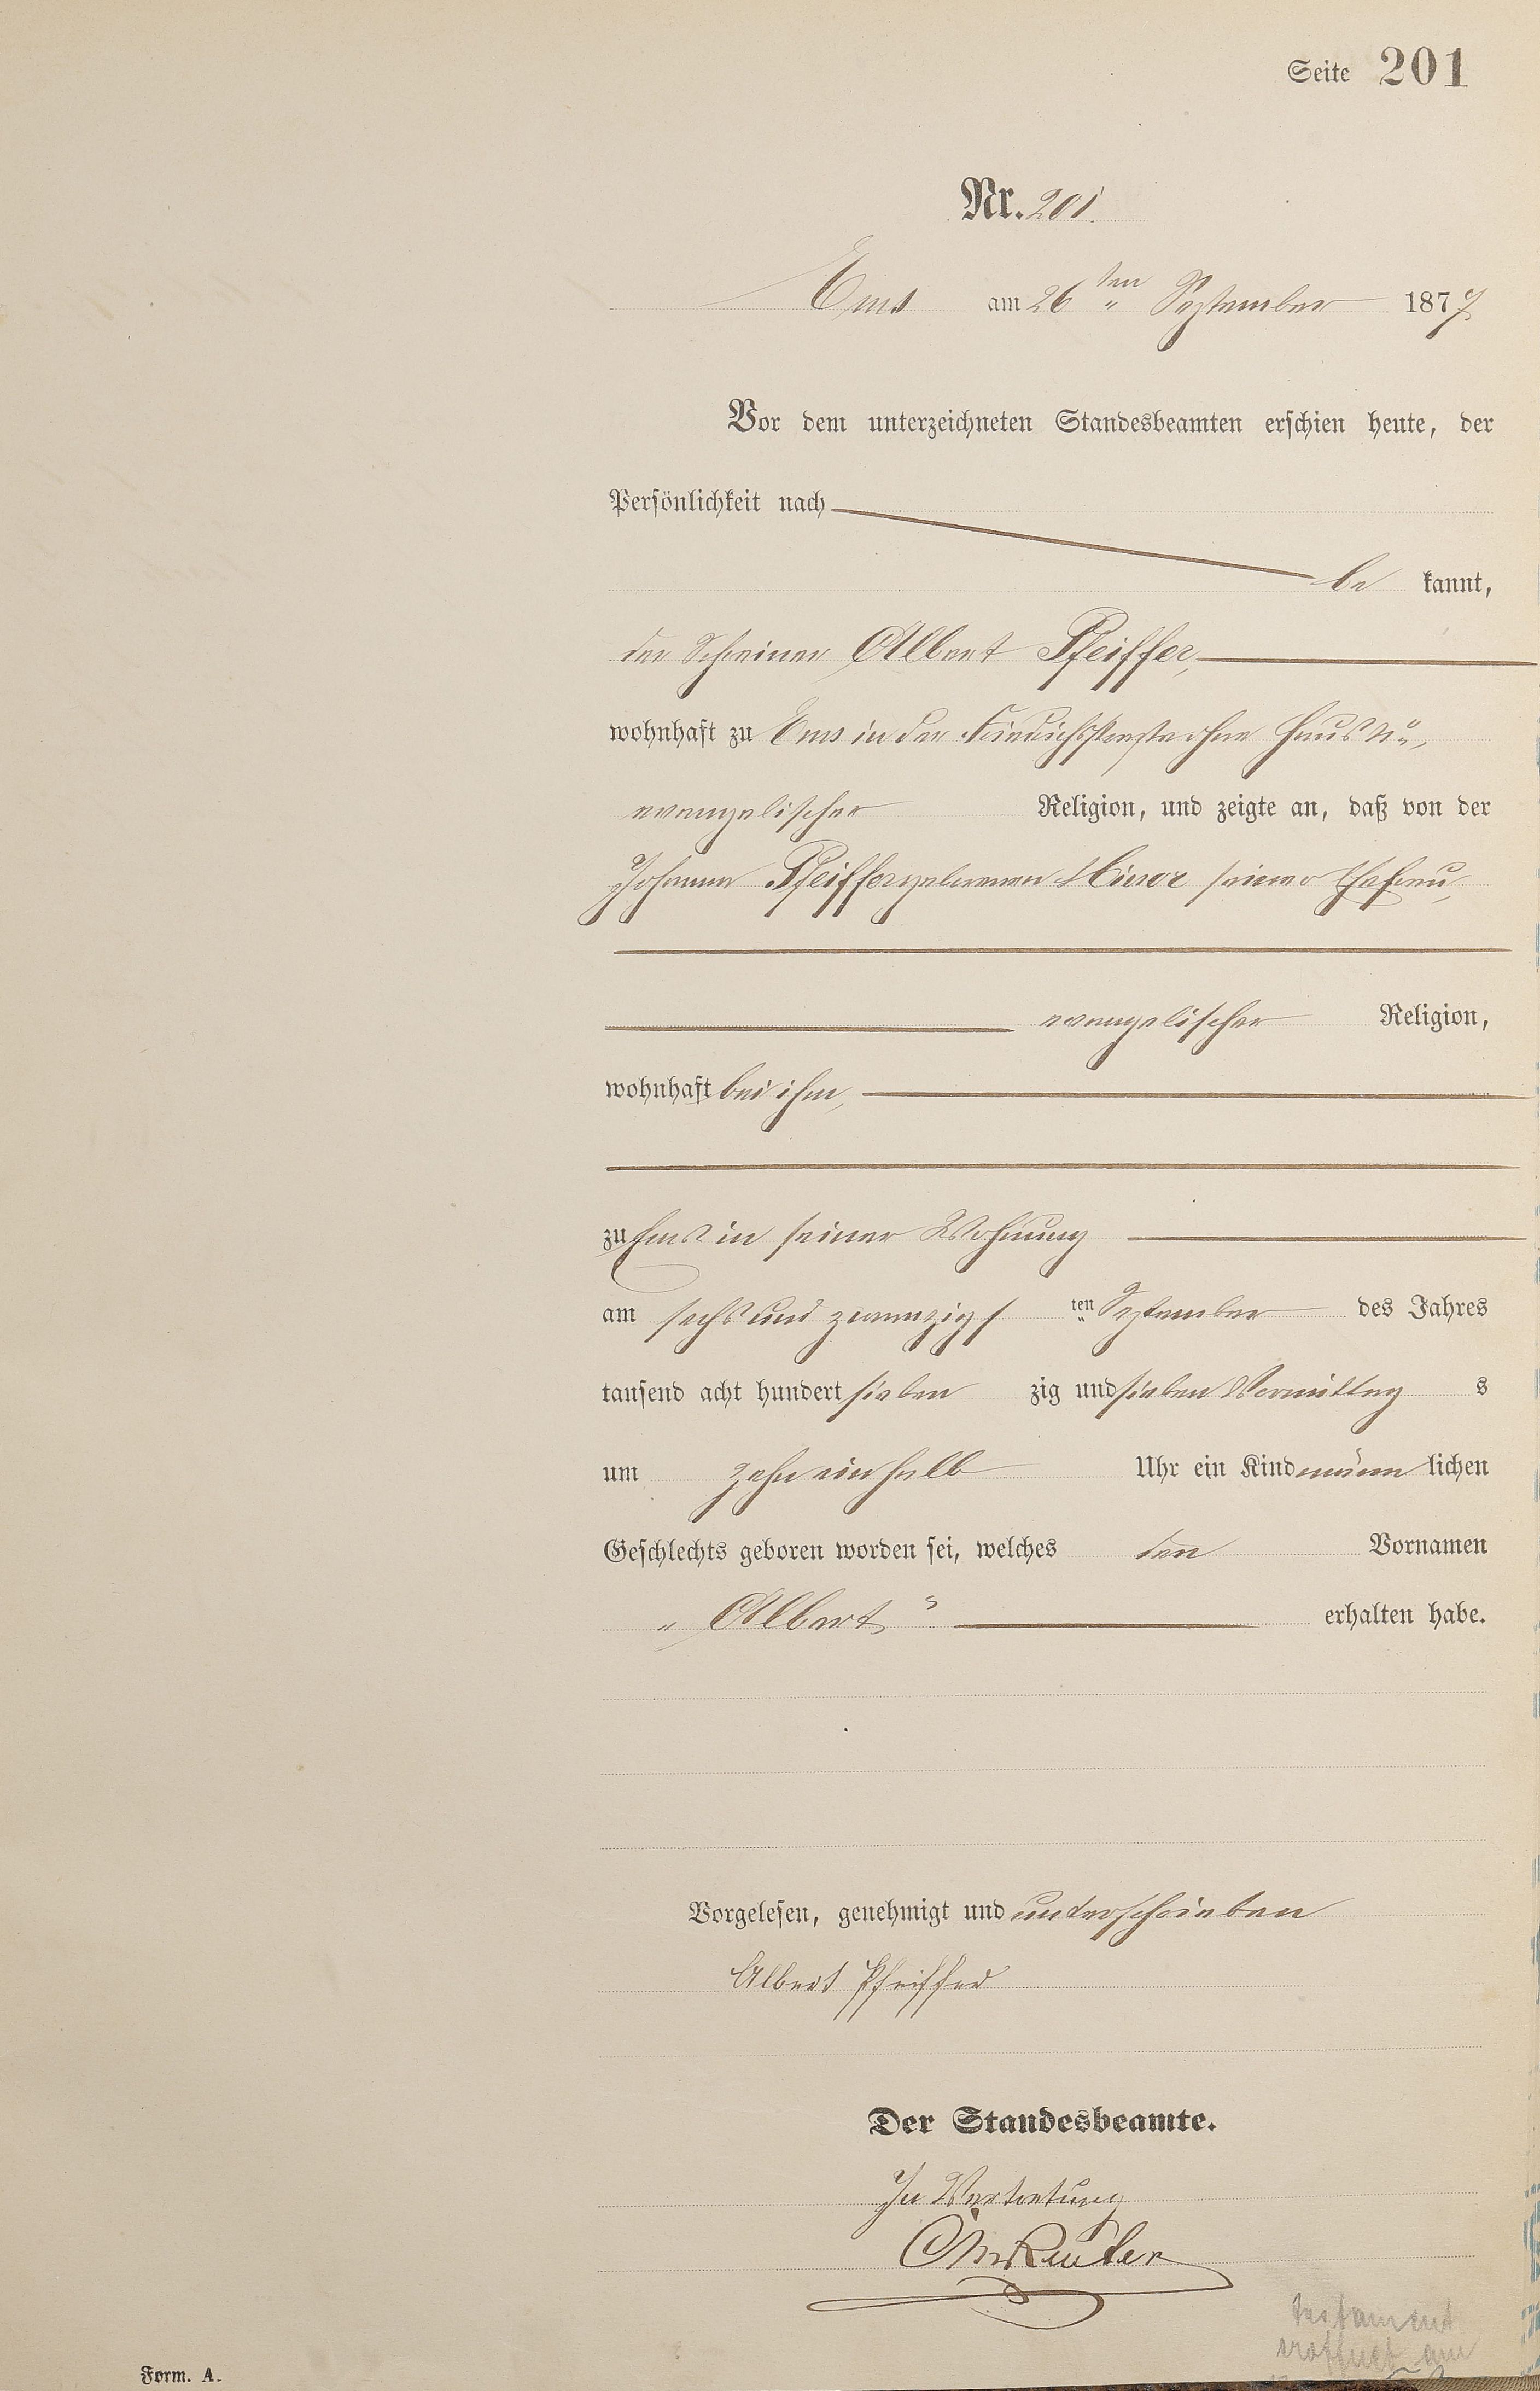 Seite 201
Nr. 201.
Ems am 26ten September 1877
Vor dem unterzeichneten Standesbeamten erschien heute, der
Persönlichkeit nach
be kannt,
der Schreiner Albert Pfeiffer,
wohnhaft zu Ems in der Haus
evangelischer Religion, und zeigte an, daß von der
Pfeiffer geborenen seiner Ehefrau,
evangelischer Religion,
wohnhaft bei ihm,
zu Ems in seiner Wohnung
am sechs und zwanzigs ten September des Jahres
tausend acht hundert sieben zig und sieben Vormittag s
um zehn ein halb Uhr ein Kind männ lichen
Geschlechts geboren worden sei, welches den Vornamen
„Albert“ erhalten habe.
Vorgelesen, genehmigt und unterschrieben
Albert Pfeiffer
Der Standesbeamte.
In Vertretung
Testament
eröffnet am
Form. A.